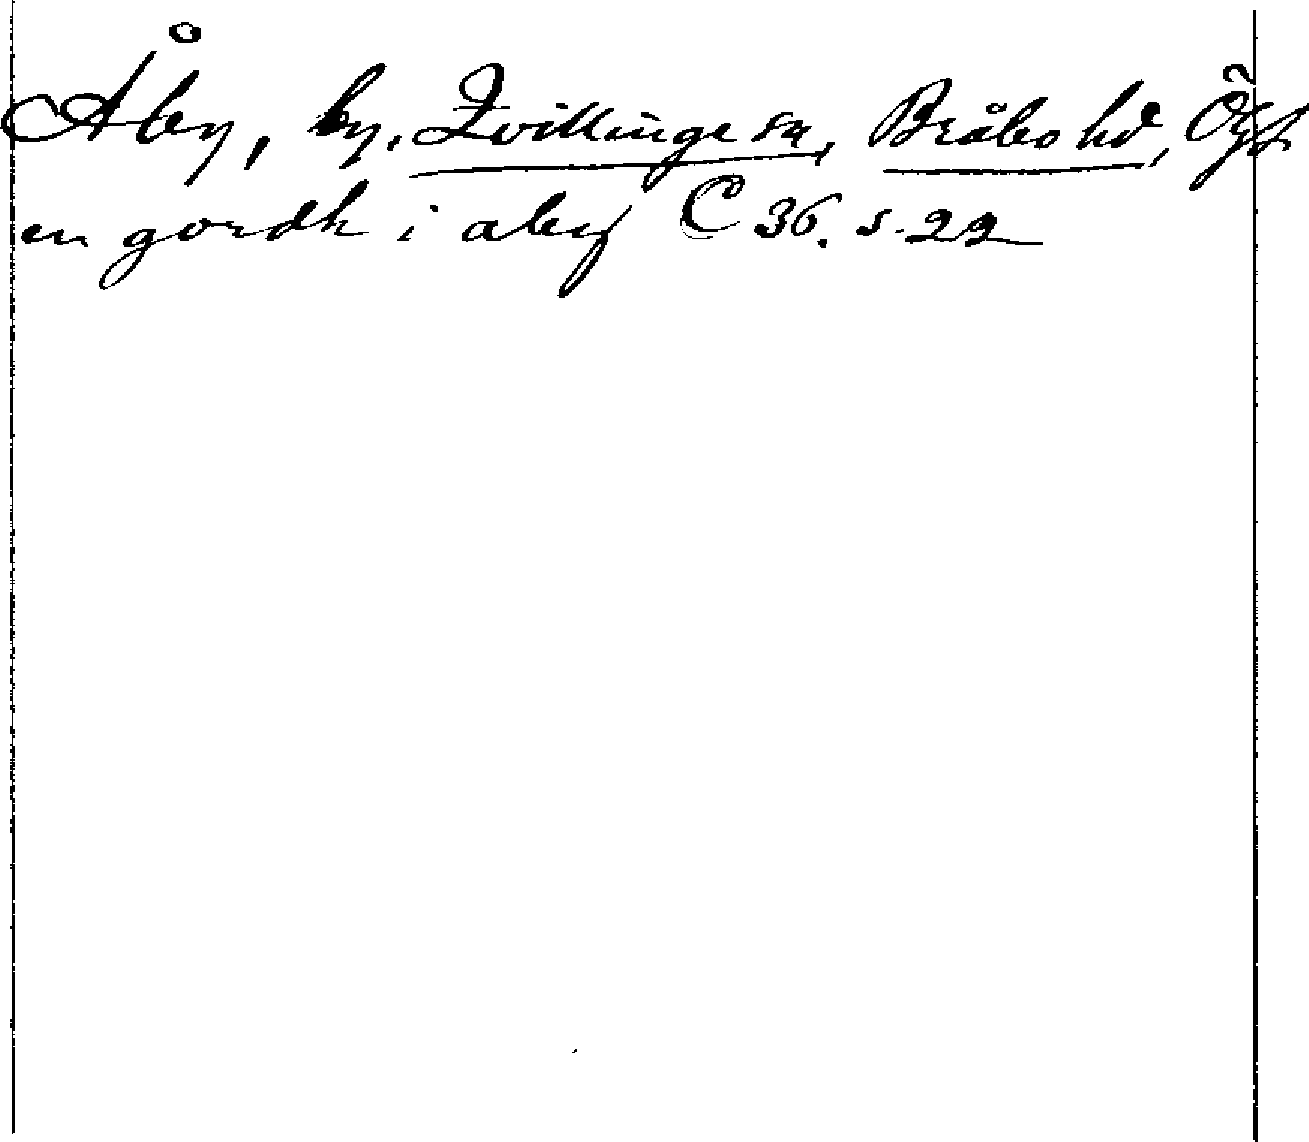 Åby, by, Kvillinge sn, Bråbo hd, Ög
en gordh i aby C 36. s. 22